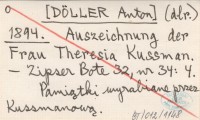 [DÖLLER Anton] (dr.)
1894. Auszeichnung der
Frau Theresia Kussman.
– Zipser Bote 32, nr 34: 4.
Pamiątki wyrabiane przez
Kussmanową.
BJ/012/1148